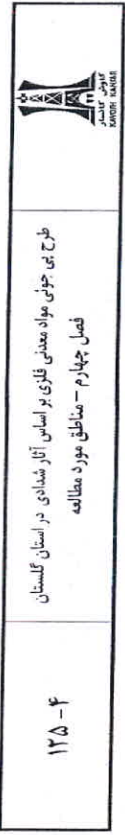 کاوش کانسار
KAVOSH KANSAR
طرح پی جوئی مواد معدنی فلزی براساس آثار شدادی در استان گلستان
فصل چهارم – مناطق مورد مطالعه
۴ - ۱۲۵